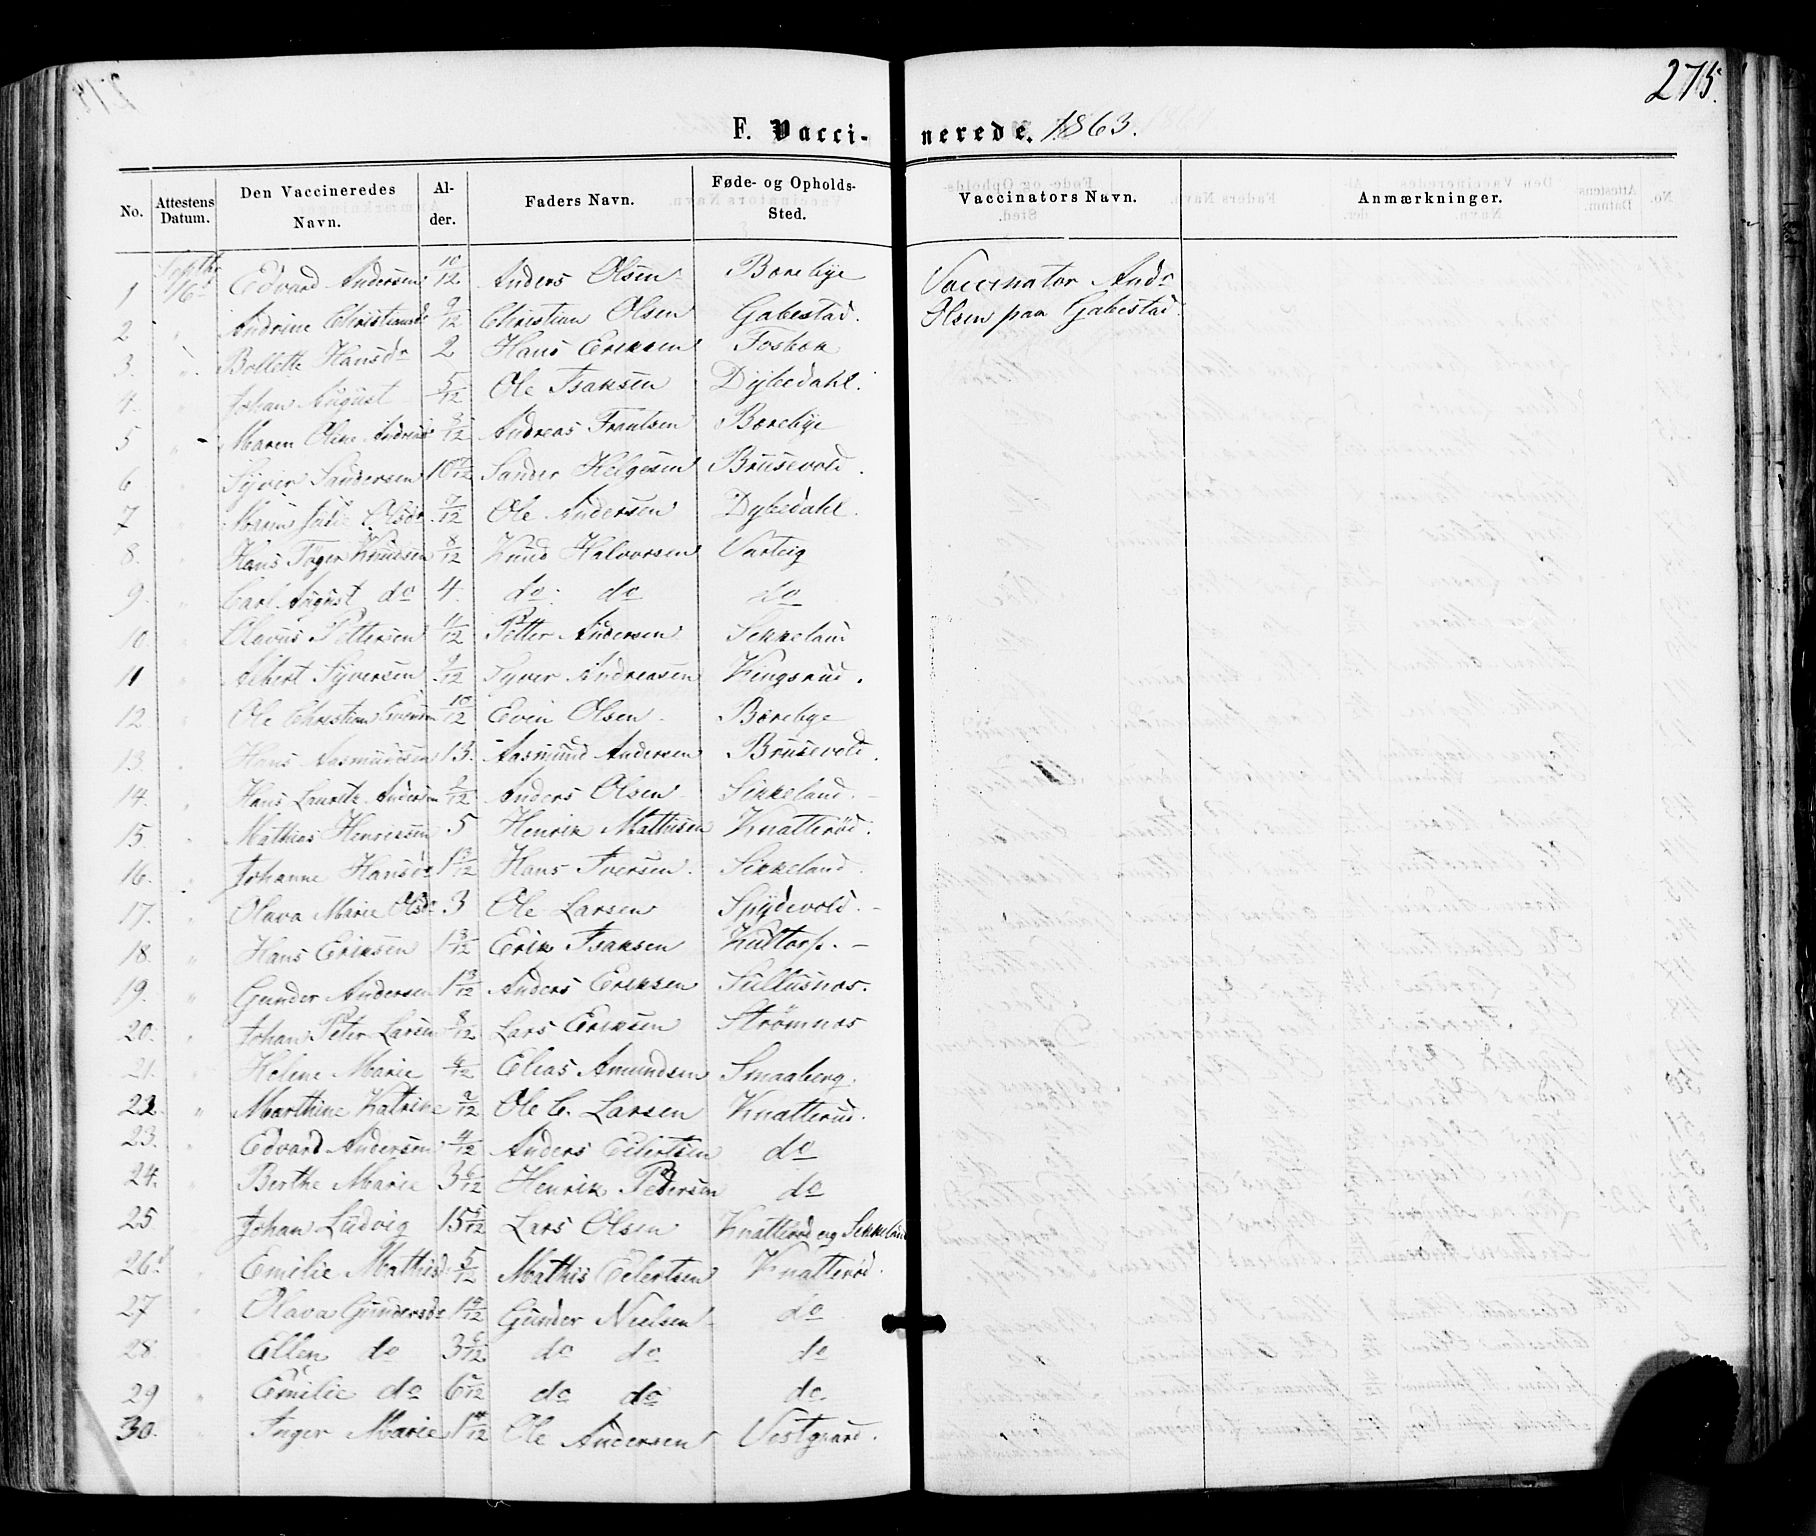 275.
F. Vacci- nerede. 1863.
No. | Attestens Datum. | Den Vaccineredes Navn. | Al- der. | Faders Navn. | Føde- og Opholds- Sted. | Vaccinators Navn. | Anmærkninger.
1 | Septbr 16d | Edvard Andersen | 10/12 | Anders Olsen | Borebye | Vaccinator Andr
2 | " | Andrine Christiansdr | 9/12 | Christian Olsen | Gabestad. | Olsen paa Gabestad.
3. | " | Bollette Hansdr | 2 | Hans Eriksen | Fosbek
4. | " | Johan August | 5/12 | Ole Isaksen | Dybedahl.
5 | " | Maren Oline Andreasd | /12 | Andreas Frantsen | Borebye
6 | " | Syver Sandersen | 10 /12 | Sander Helgesen | Brusevold.
7 | " | Maren Julie Olsdr | 7/12 | Ole Andersen | Dybedahl.
8. | " | Hans Tøger Knudsen | 8/12 | Knud Halvorsen | Varteig
9. | " | Carl August do | 4. | do. do | do
10 | " | Olavus Pettersen | 11/12 | Petter Andersen | Sekkelund
11 | " | Albert Syversen | 9/12 | Syver Andreasen | Kingsrud.
12 | " | Ole Christian Evensen | 10/12 | Even Olsen | Borebye
13. | " | Hans Aasmundsen | 13. | Aasmund Andersen | Brusevold.
14. | " | Hans Lauritz Andersen | 9/12 | Anders Olsen | Sekkeland.
15. | " | Mathias Henriksen | 5 | Henrik Mathisen | Knatterød.
16. | " | Johanne Hansdr | 1 3/12 | Hans Iversen. | Sekkeland.
17. | " | Olava Marie Olsdr | 3 | Ole Larsen | Spydevold.
18. | " | Hans Eriksen | 1 3/12 | Erik Isaksen | Kultorp.
19. | " | Gunder Andersen | 1 3/12 | Anders Eriksen | Sullusnæs.
20. | " | Johan Peter Larsen | 8/12 | Lars Eriksen | Strømnæs
21. | " | Helene Marie | 4/12 | Elias Amundsen | Smaaberg.
22 | " | Marthine Katrine | 9/12 | Ole C. Larsen | Knatterud.
23. | " | Edvard Andersen | 4/12 | Anders Eilertsen | do
24. | " | Berthe Marie | 3 6/12 | Henrik Pedersen | do
25 | " | Johan Ludvig | 15 /12 | Lars Olsen | Knatterød og Sekkeland
26. | " | Emilie Mathisd | 5/12 | Mathis Eilertsen | Knatterød.
27 | " | Olava Gundersdr | 1 /12 | Gunder Nielsen | do
28. | " | Ellen do | 3 6/12 | do do | do
29 | " | Emilie do | 6 /12 | do do | do.
30. | " | Inger Marie | 1 /12 | Ole Andersen | Vestgaard.